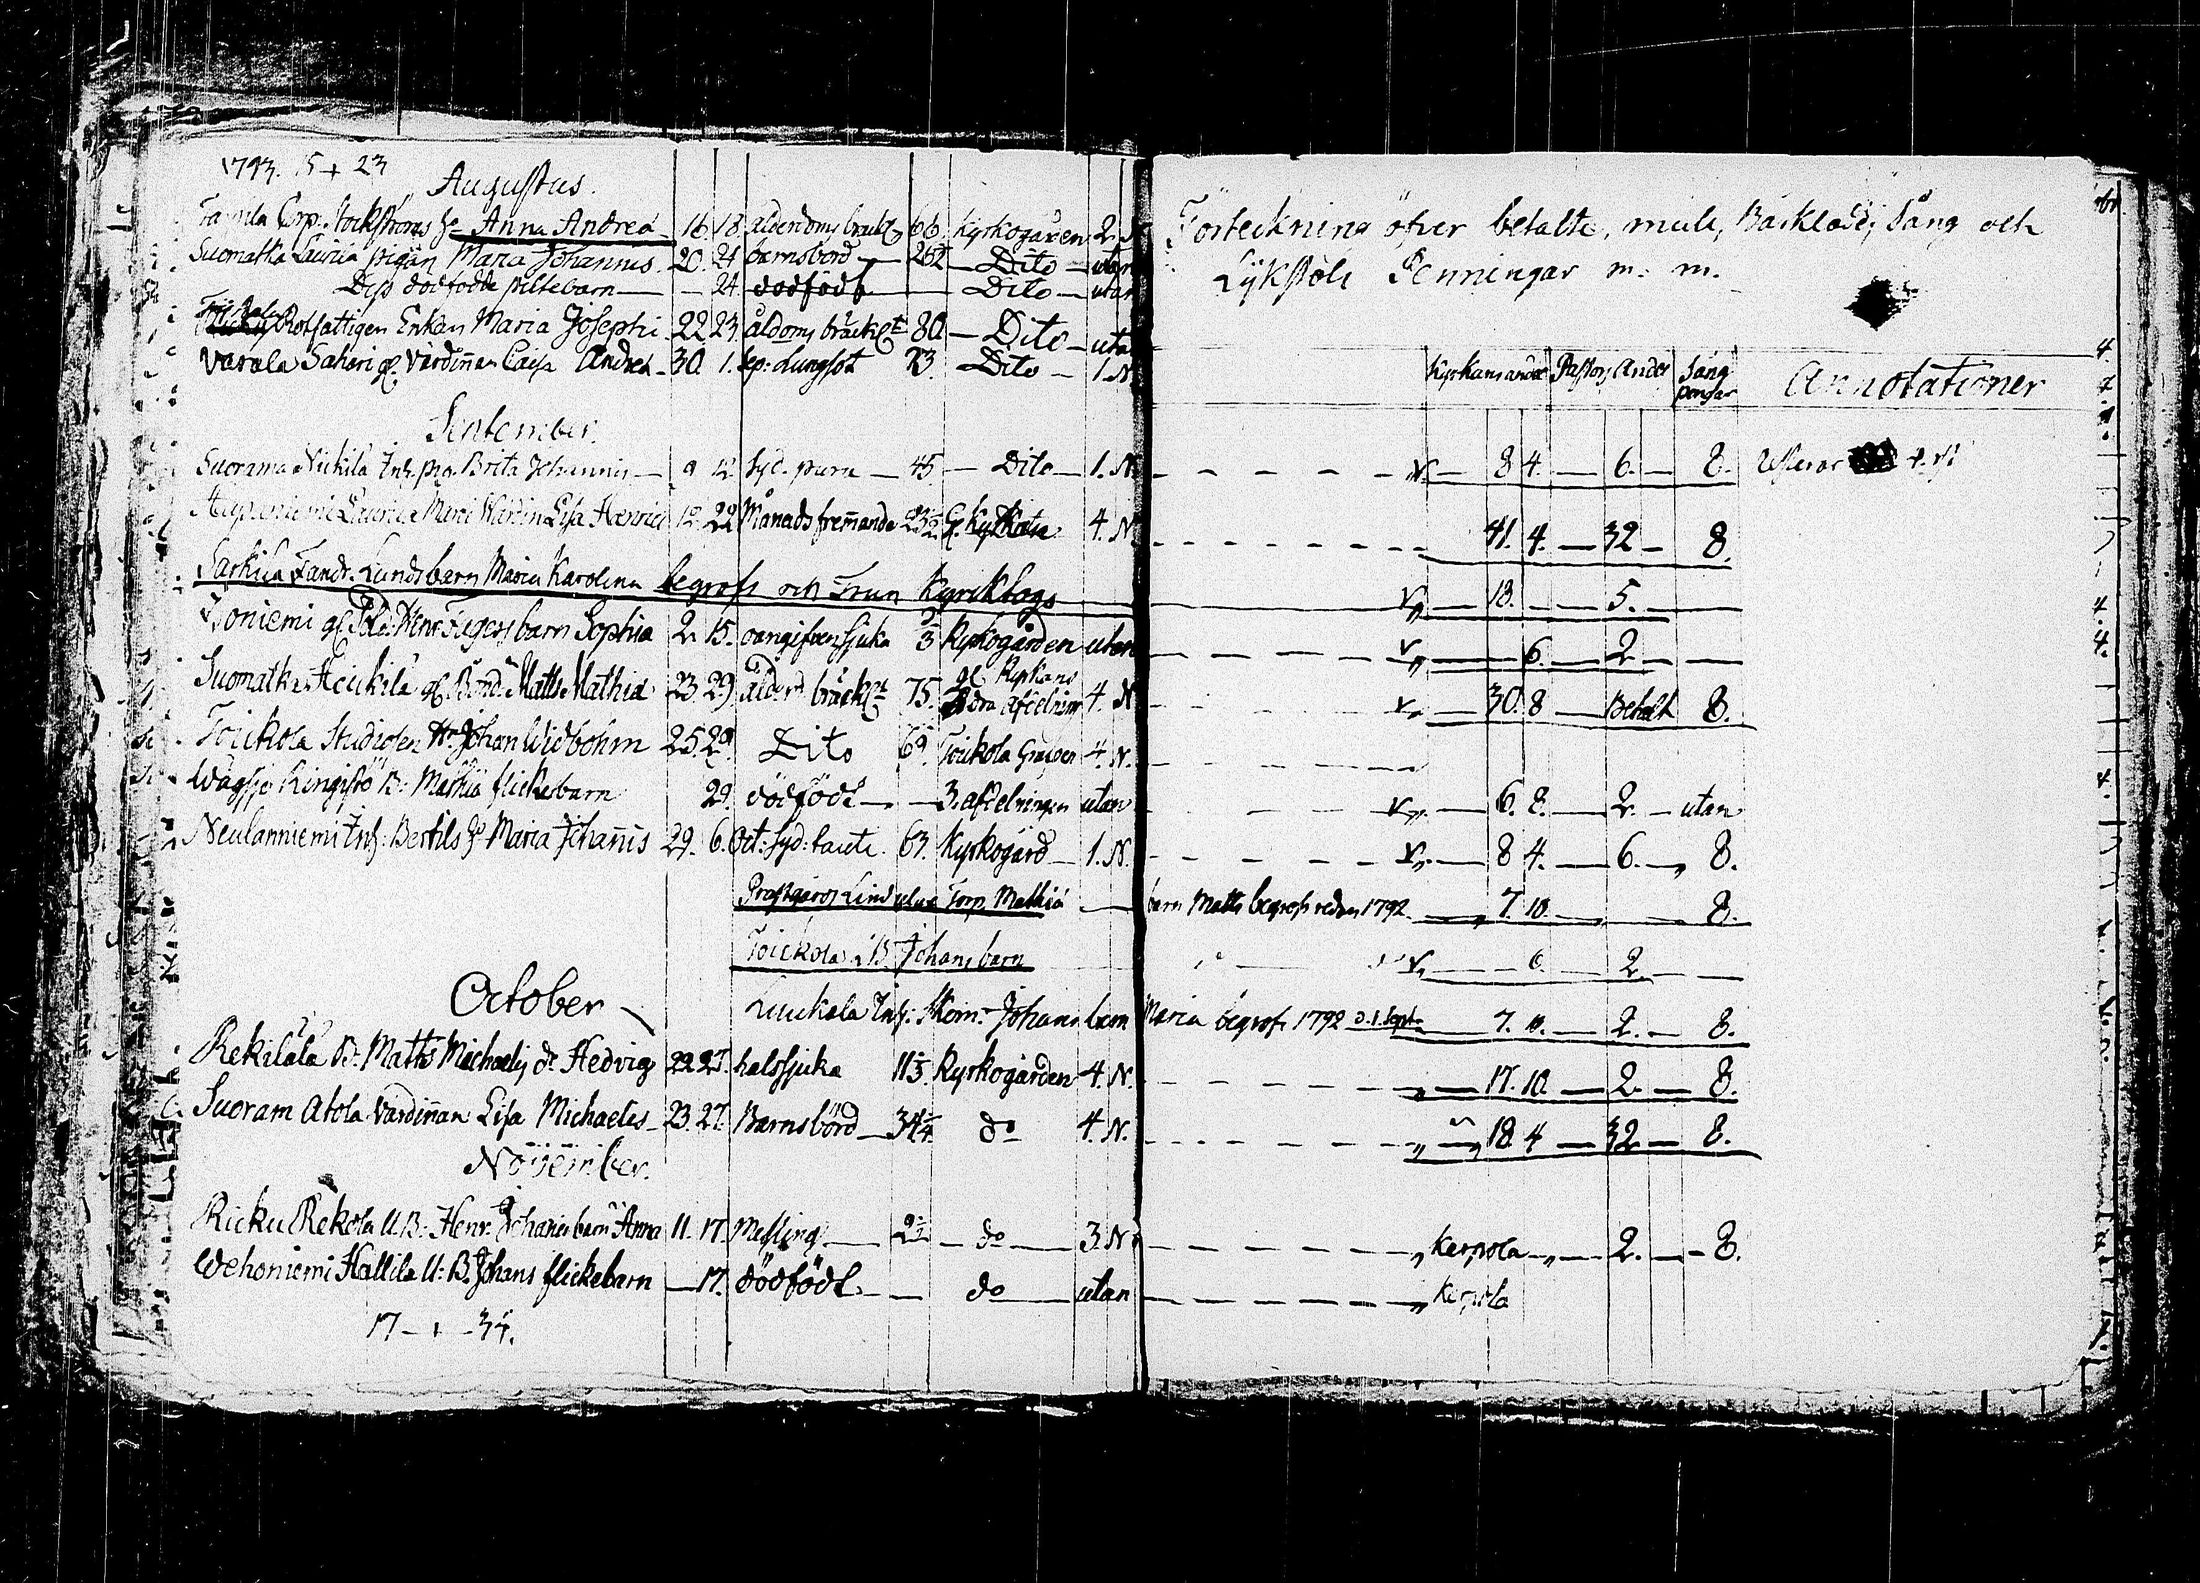 1793. 15 + 23
Augustus.
Corp. Stockströms h. Anna Andreæ 16 18 ålderdoms bräckl. 66 Kyrkogården 2. N
Suomatka Lauria pigan Maria Johannis. 20. 24 barnsbörd 25½ Dito utan
Dess dödfödde piltebarn 24. dödfödt Dito utan
Rotfattigen Enkan Maria Josephi 22 23 åldoms bräckl. 80 Dito utan
Varala Sahari gl. värdinnan Caisa Andreæ 30. 1. Sep: Lungsot 73. Dito 1. N.
September.
Suorama Nickilä Inh. pig. Brita Johannis 9 12 45 Dito 1. N.
Lauriala Värdin Lisa Henrici 12. 22 Månads fremande 23½ gl. Kyrkan 4. N.
Sarkila Landb. Lunds barn Maria Karolina begrofs och Frun Kyrcktogs
gl. Henr. barn Sophia 2. 15. oangifven sjuka ⅓ Kyrkogården utan
Suomatka Heickilä gl. Bond. Matts Mathiæ 23 29 ålderd. bräckl. 75. gl. Kyrkans 2dra afdelning 4. N
Toickola Studiosen Hr. Johan Widbohm 25. 29. Dito 69. Toickola Grafven 4. N.
Wägsjö B: Mathiæ flickebarn 29. dödfödt 3. afdelningen utan
Neulanniemi Inh: Bertils h. Maria Johannis 29. 6. Oct: 63. Kyrkogård 1. N.
Torp. Mathiæ
Toickola B. Johans barn
October
Luukala Inh: Johans barn
Rekilälä B. Matts Michaelis dr Hedvig 22 27. halssjuka 11⅓ Kyrkogården 4. N.
Suoram Atola värdinnan Lisa Michaelis 23. 27. Barnsbörd 34¼ do 4. N.
November.
Ricku Rekola U. B: Henr. Johans barn Anna 11. 17. Messling 2½ do 3. N
Wehoniemi Hallila U: B. Johans flickebarn 17. dödfödt do utan
17 – + – 34.
Förteckning öfver betalte, mull, Bårkläde, Sång och
Lijkstols Penningar m: m.
Kyrkans andel Pastors Andel Sång pengar Annotationer
8 4. 6. 8.
41. 4. 32 8.
18. 5.
6. 2
30. 8 Betalt 8.
6. 8. 2. utan
8 4. 6. 8.
barn Matts begrofs redan 1792. 7. 10. 8.
6. 2.
Maria begrofs 1792 d. 1. Sept. 7. 10. 2. 8.
17. 10. 2. 8.
18 4 32 8.
Kerpola 2. 8.
Kerpola